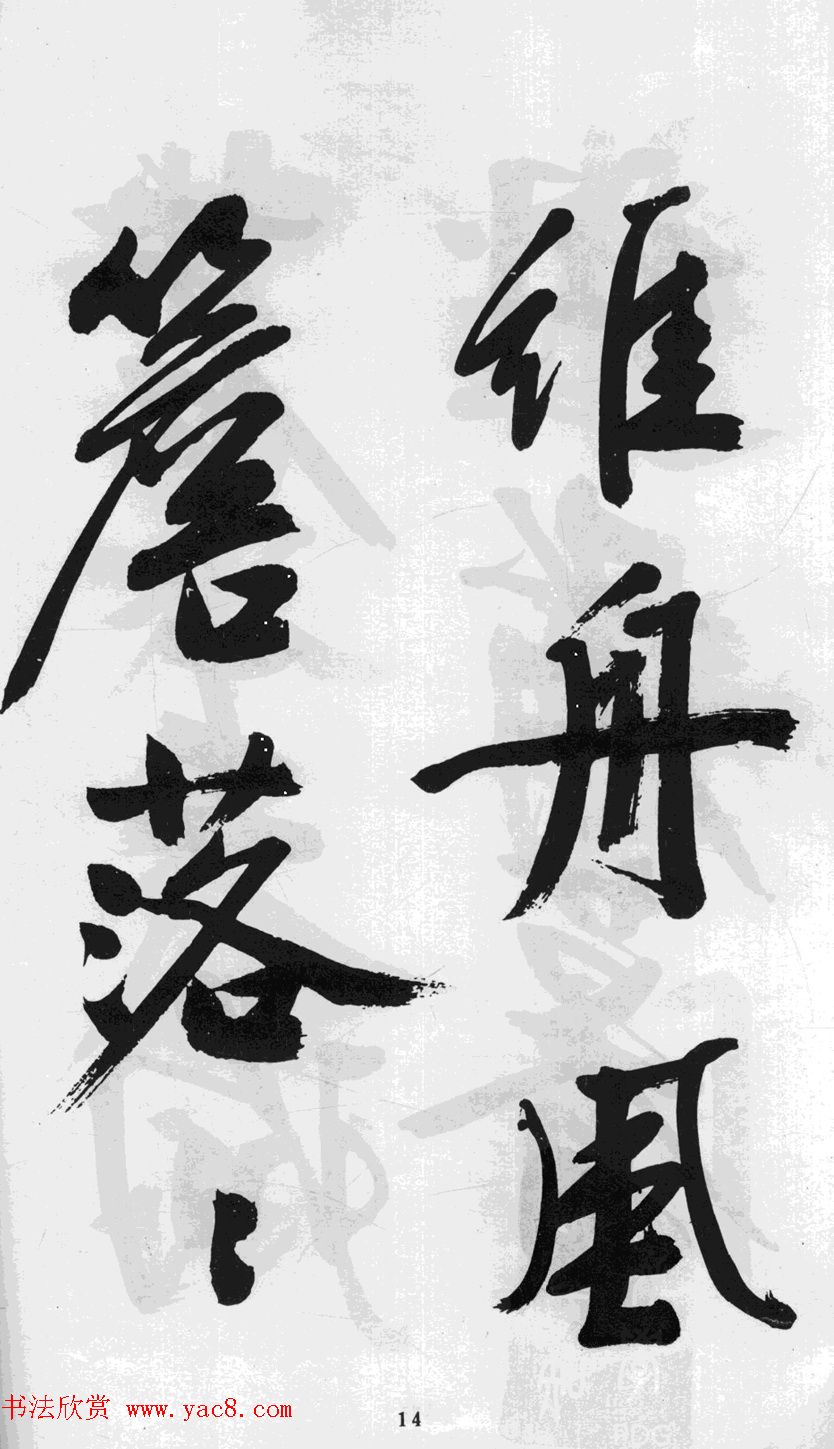 维舟风
簷落〻
书法欣赏 www.yac8.com
14